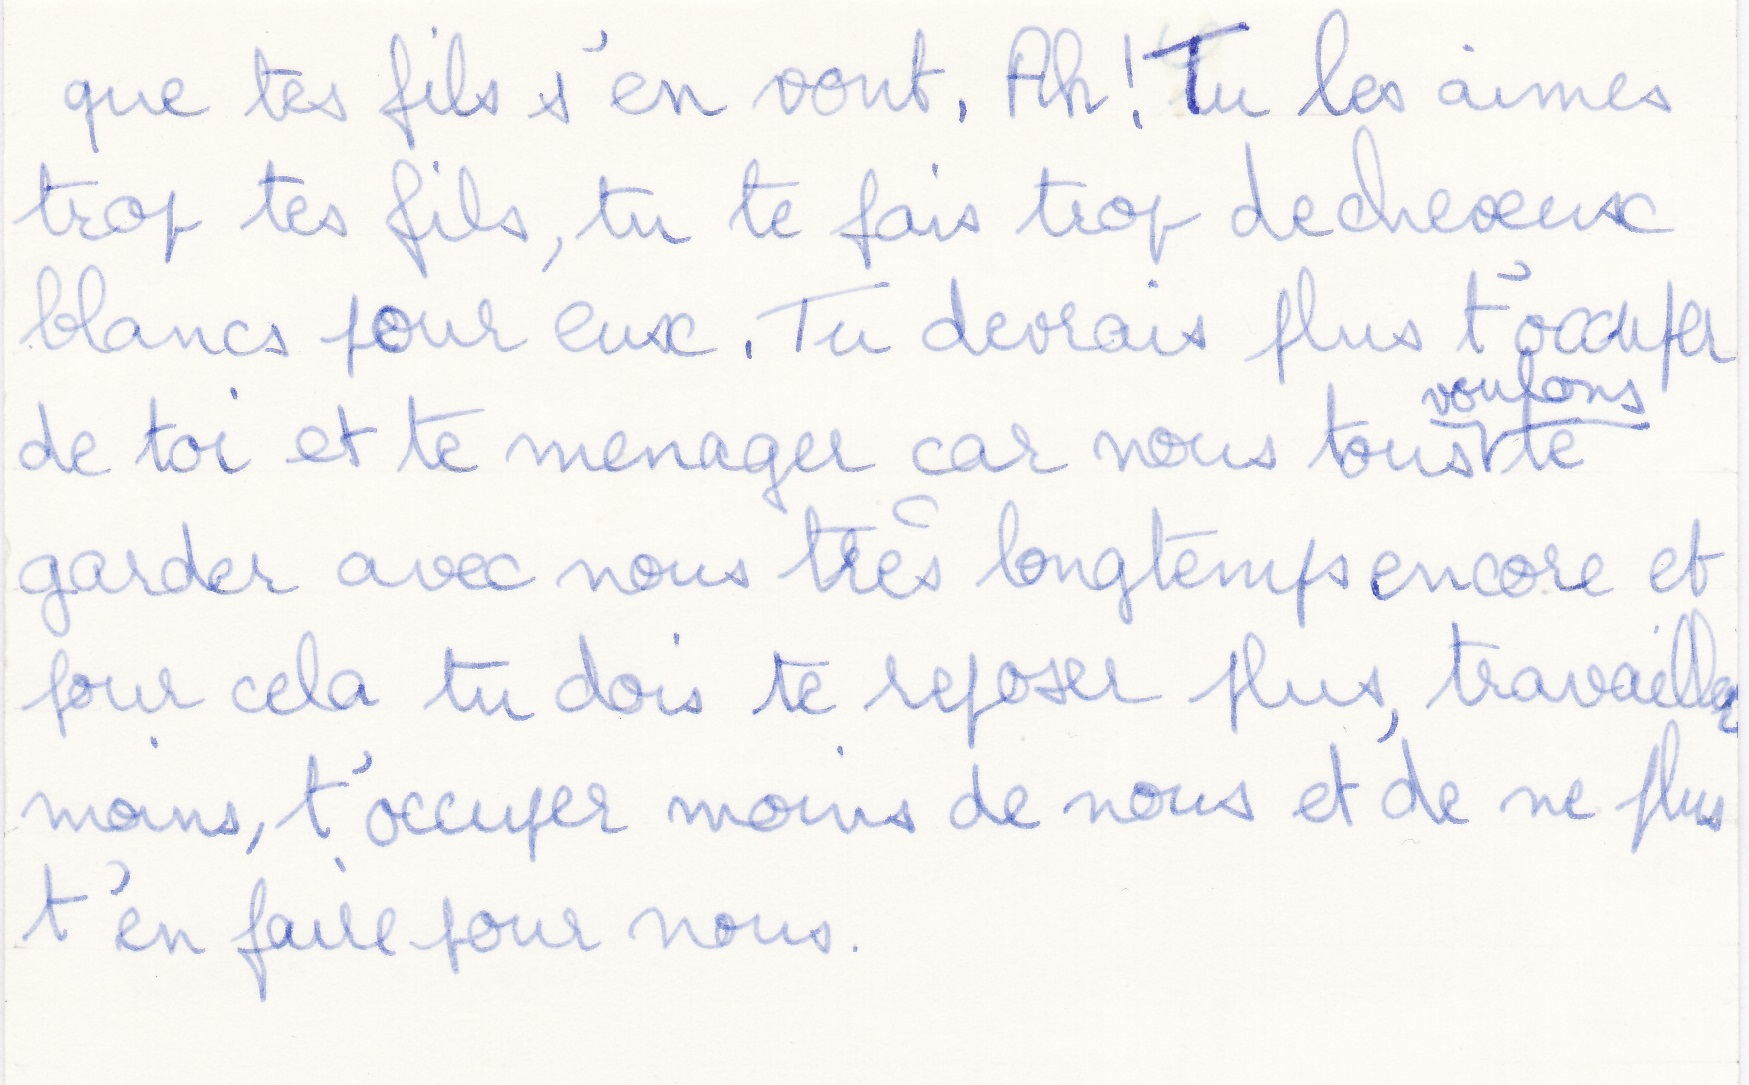 que tes fils s'en vont. Ah! Tu les aimes
trop tes fils, tu te fais trop de cheveux
blancs pour eux. Tu devrais plus t'occuper
de toi et te menager car nous tous voulons te
garder avec nous très longtemps encore et
pour cela tu dois te reposer plus, travailler
moins, t'occuper moins de nous et de ne plus
t'en faire pour nous.